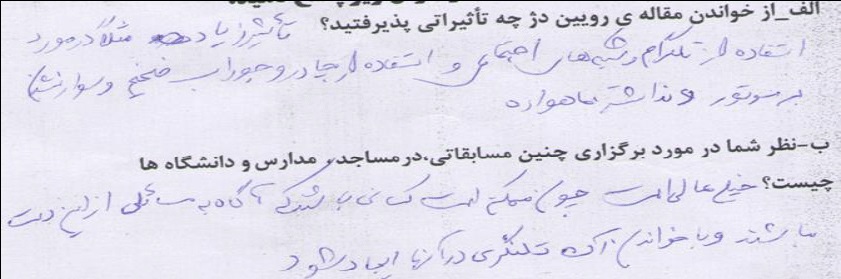 الف_از خواندن مقاله ی رویین دژ چه تأثیراتی پذیرفتید؟ تأثیر زیاد مثلا در مورد
استفاده از تلگرام و شبکه های اجتماعی و استفاده از چادر و جوراب ضخیم و سوار نشدن
بر موتور و نداشتن ماهواره
ب-نظر شما در مورد برگزاری چنین مسابقاتی،درمساجد، مدارس و دانشگاه ها
چیست؟ خیلی عالی است چون ممکن است کسانی باشند که آگاه به مسائلی از این دست
نباشند و با خواندن آن تلنگری در آنها ایجاد شود